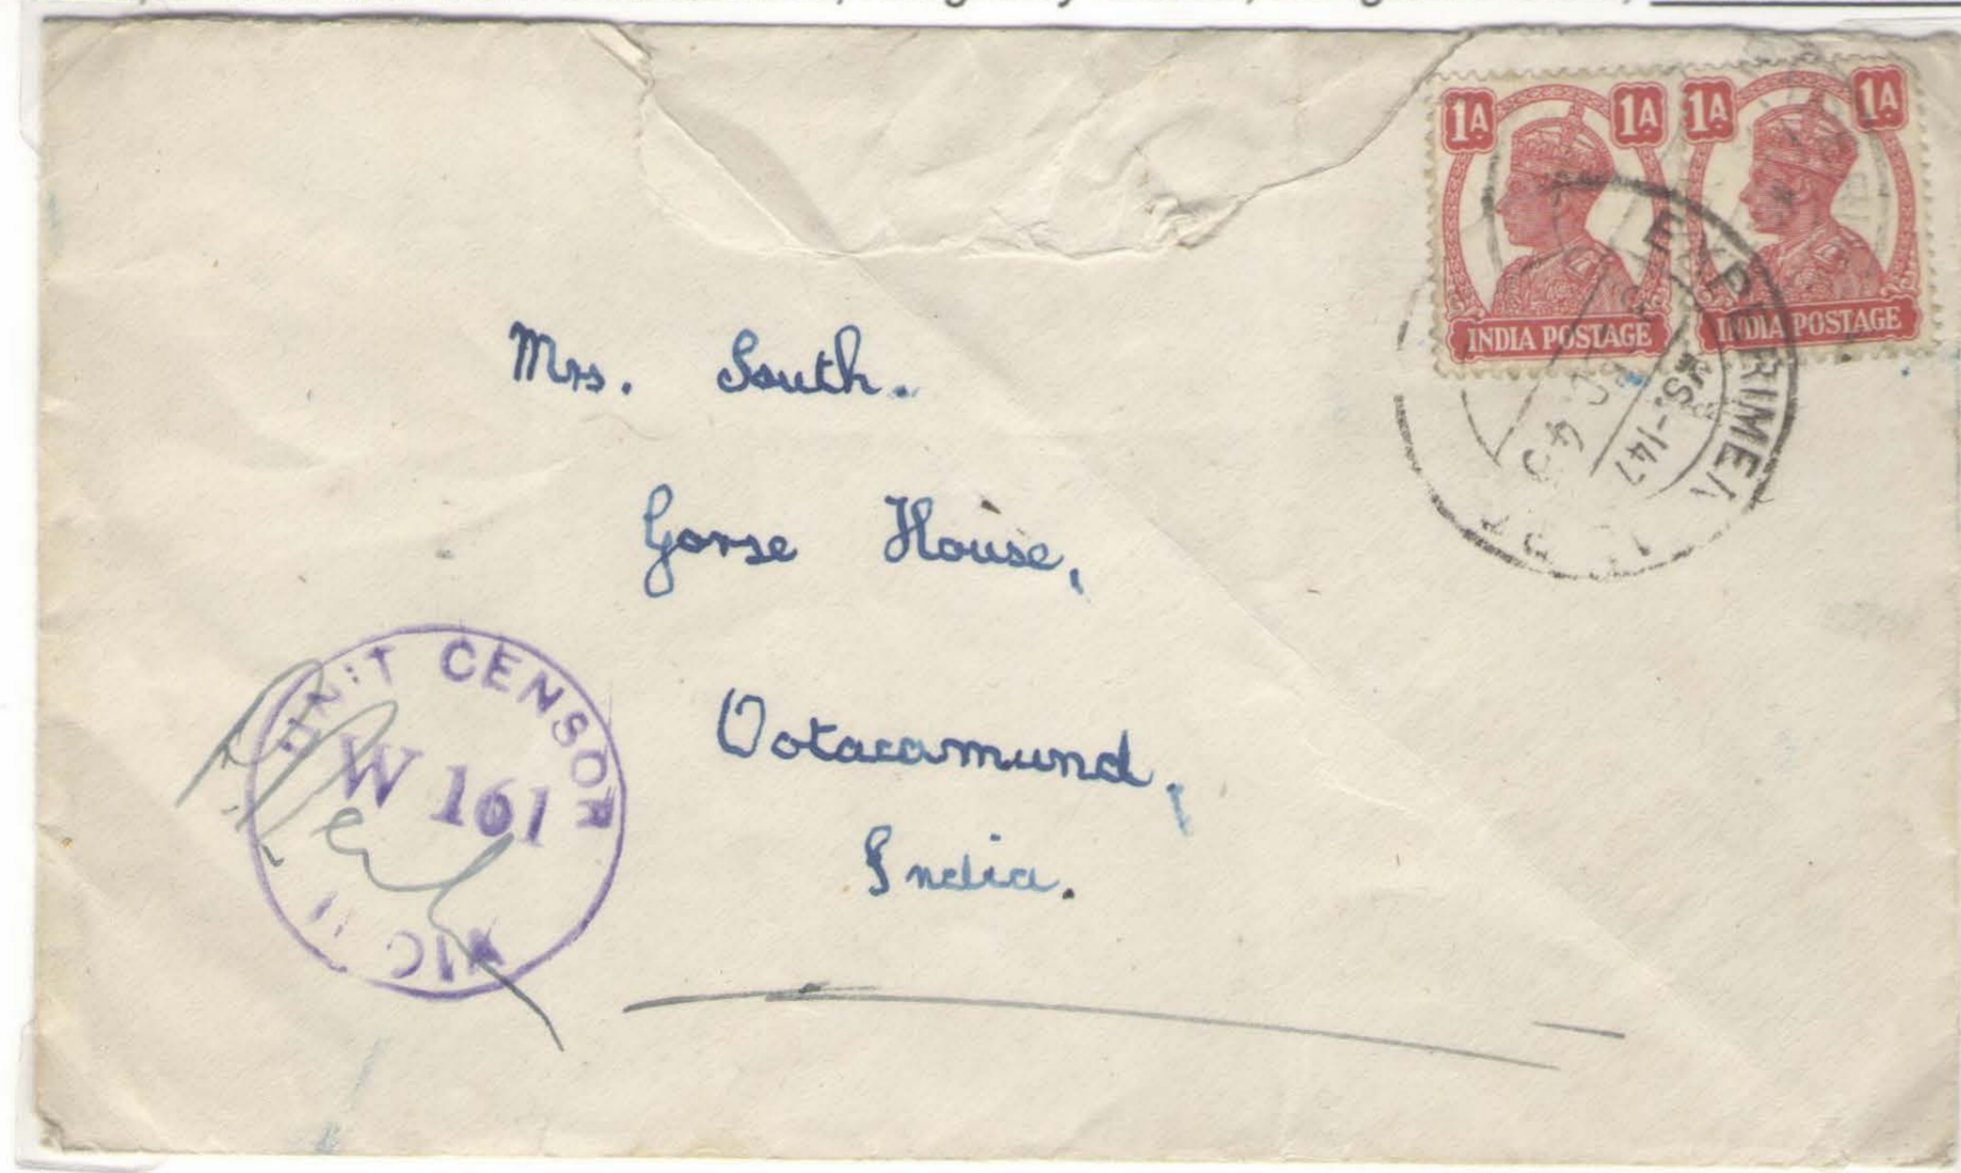 1A 1A 1A 1A
INDIA POSTAGE INDIA POSTAGE
NS.-147
Mrs. South.
Gorse House,
Ootacamund,
India.
UNIT CENSOR
W 161